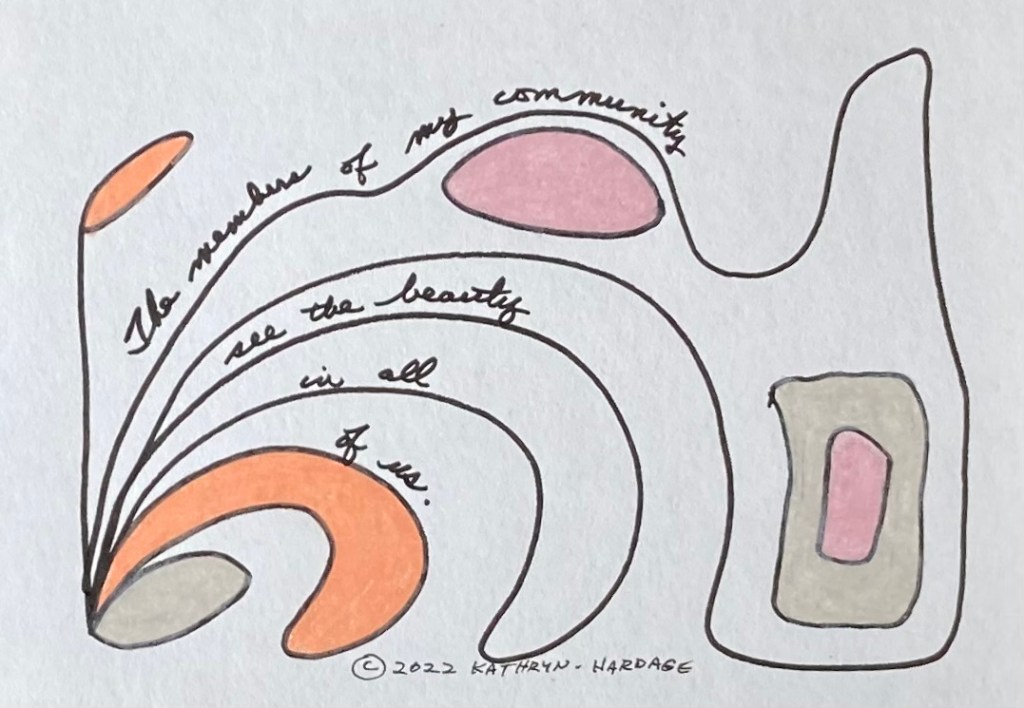 The members of my community
see the beauty
in all
of us.
© 2022 KATHRYN - HARDAGE